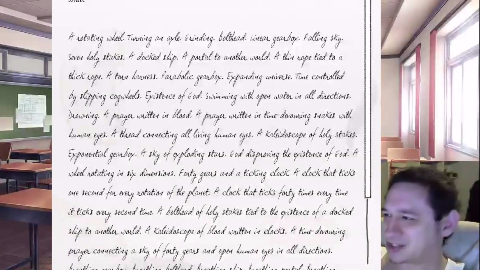 A rotating wheel. Turning an axle. Grinding. Bolthead. Linear gearbox. Falling sky.
Seven holy stakes. A docked ship. A portal to another world. A thin rope tied to a
thick rope. A torn harness. Parabolic gearbox. Expanding universe. Time controlled
by slipping cogwheels. Existence of God. Swimming with open water in all directions.
Drowning. A prayer written in blood. A prayer written in time-devouring snakes with
human eyes. A thread connecting all living human eyes. A kaleidoscope of holy stakes.
Exponential gearbox. A sky of exploding stars. God disproving the existence of God. A
wheel rotating in six dimensions. Forty gears and a ticking clock. A clock that ticks
one second for every rotation of the planet. A clock that ticks forty times every time
it ticks every second time. A bolthead of holy stakes tied to the existence of a docked
ship to another world. A kaleidoscope of blood written in clocks. A time-devouring
prayer connecting a sky of forty gears and open human eyes in all directions.
Breathing gearbox. Breathing bolthead. Breathing ship. Breathing portal. Breathing